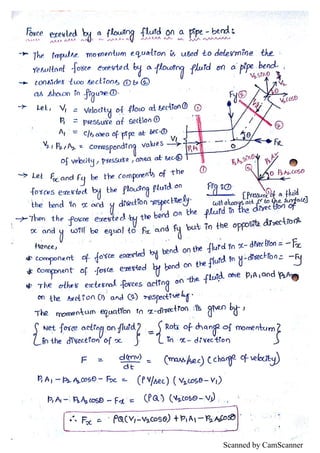 Force exerted by a flowing fluid on a pipe-bend:
→ The impulse momentum equation is used to determine the
resultant force exerted by a flowing fluid on a pipe bend.
→ consider two sections ① & ②
as shown in figure-①
V₂ sinθ
V₂
V₂ cosθ
→ Let, V₁ = velocity of flow at section ①
P₁ = pressure at section ①
A₁ = c/s area of pipe at sec-①
V₂, P₂, A₂ = corresponding values
of velocity, pressure, area at sec ②
①
Fy
②
θ
V₁
P₁A₁
Fx
P₂A₂ sinθ
P₂A₂
P₂A₂ cosθ
→ Let Fx and Fy be the components of the
forces exerted by the flowing fluid on
the bend in x and y direction respectively.
Fig ①
[Pressure of a fluid
will always act ⊥r to the surface]
→ Then the force exerted by the bend on the fluid in the direction of
x and y will be equal to Fx and Fy but in the opposite directions
Hence,
* component of force exerted by bend on the fluid in x-direction = -Fx
* component of force exerted by bend on the fluid in y-direction = -Fy
* The other external forces acting on the fluid are P₁A₁ and P₂A₂
on the section (1) and (2) respectively.
The momentum equation in x-direction is given by:
{ Net force acting on fluid in the direction of x } = { Rate of change of momentum in x-direction }
F = d(mv)/dt = (mass/sec) (change of velocity)
P₁A₁ - P₂A₂ cosθ - Fx = (PV/sec) (V₂cosθ - V₁)
P₁A₁ - P₂A₂ cosθ - Fx = (PQ) (V₂cosθ - V₁)
∴ Fx = PQ(V₁-V₂cosθ) + P₁A₁ - P₂A₂cosθ
Scanned by CamScanner